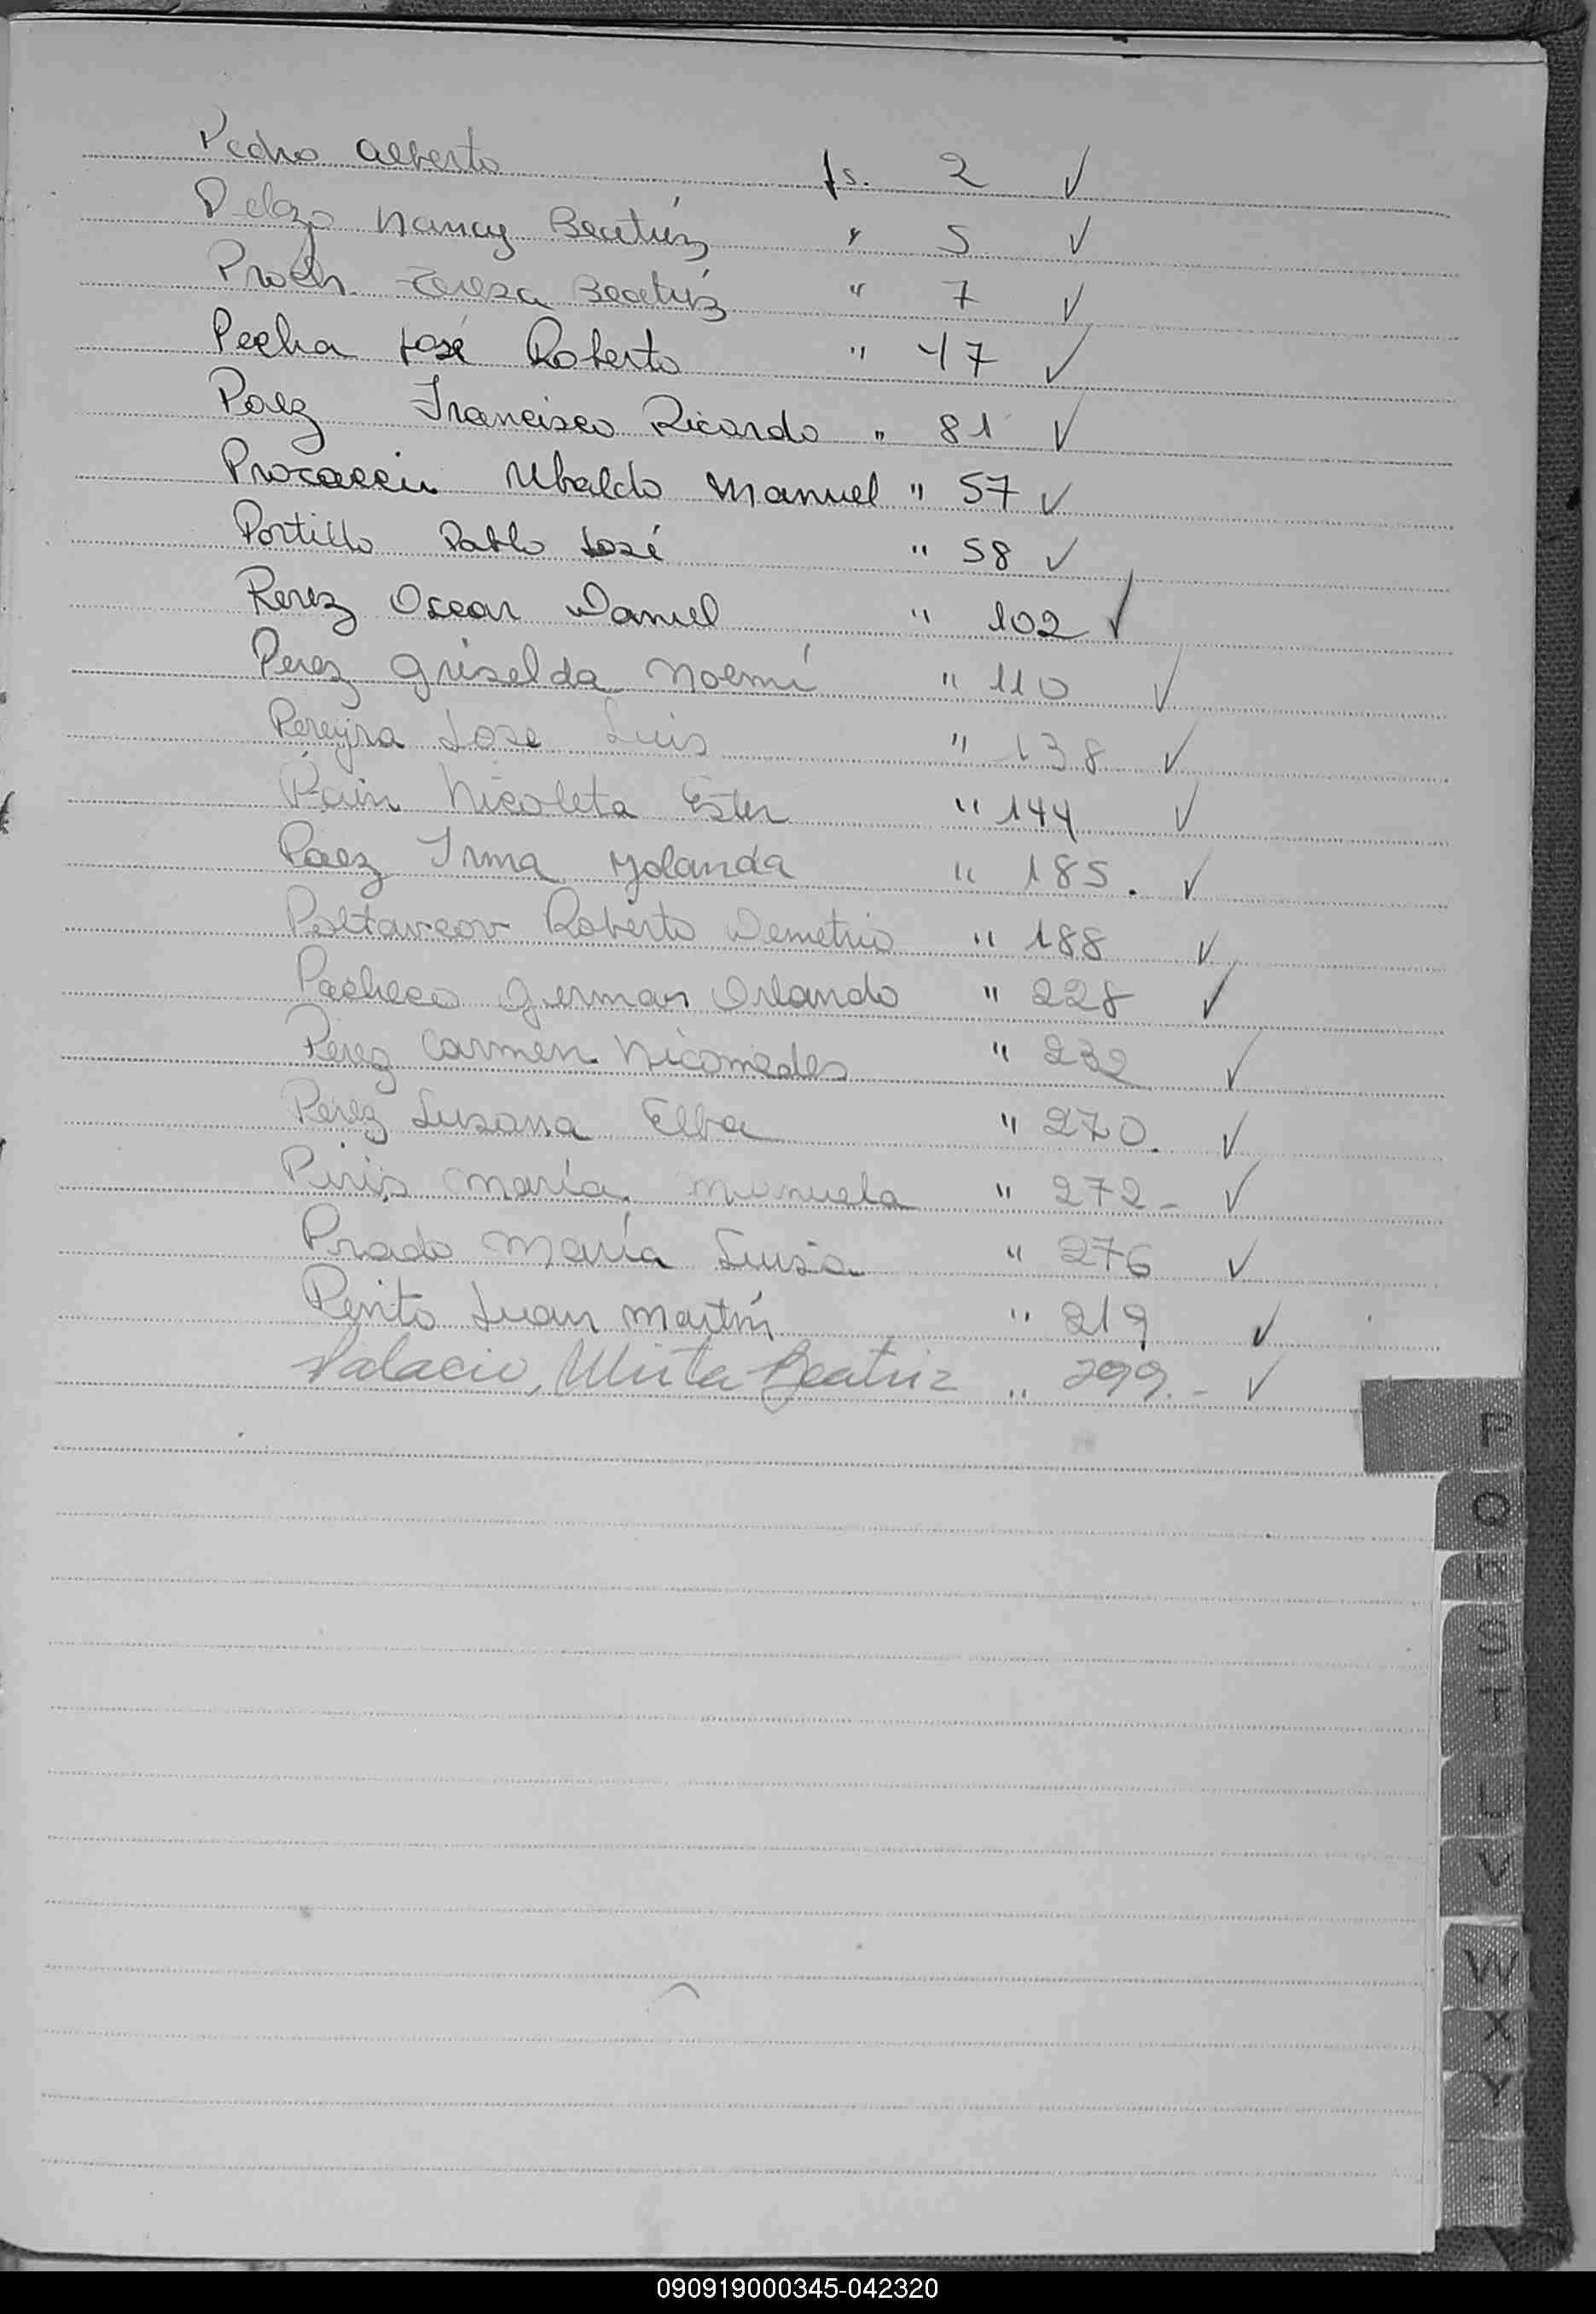 Pedro Alberto fs. 2 ✓
Pelozo Nancy Beatríz " 5 ✓
Proch Tereza Beatríz " 7 ✓
Pecha José Roberto " 47 ✓
Paez Francisco Ricardo " 81 ✓
Procaccin Ubaldo Manuel " 57 ✓
Portillo Pablo José " 58 ✓
Perez Oscar Daniel " 102 ✓
Perez Griselda Noemí " 110 ✓
Pereyra Jose Luis " 138 ✓
Pain Nicoleta Ester " 144 ✓
Paez Irma Yolanda " 185. ✓
Poltavcov Roberto Demetrio " 188 ✓
Pacheco German Orlando " 228 ✓
Perez Carmen Nicomedes " 232 ✓
Perez Susana Elba " 270. ✓
Piris María Manuela " 272- ✓
Prado María Luisa " 276 ✓
Perito Juan Martín " 219 ✓
Palacio, Mirta Beatriz " 299.- ✓
P
Q
R
S
T
U
V
W
X
Y
090919000345-042320